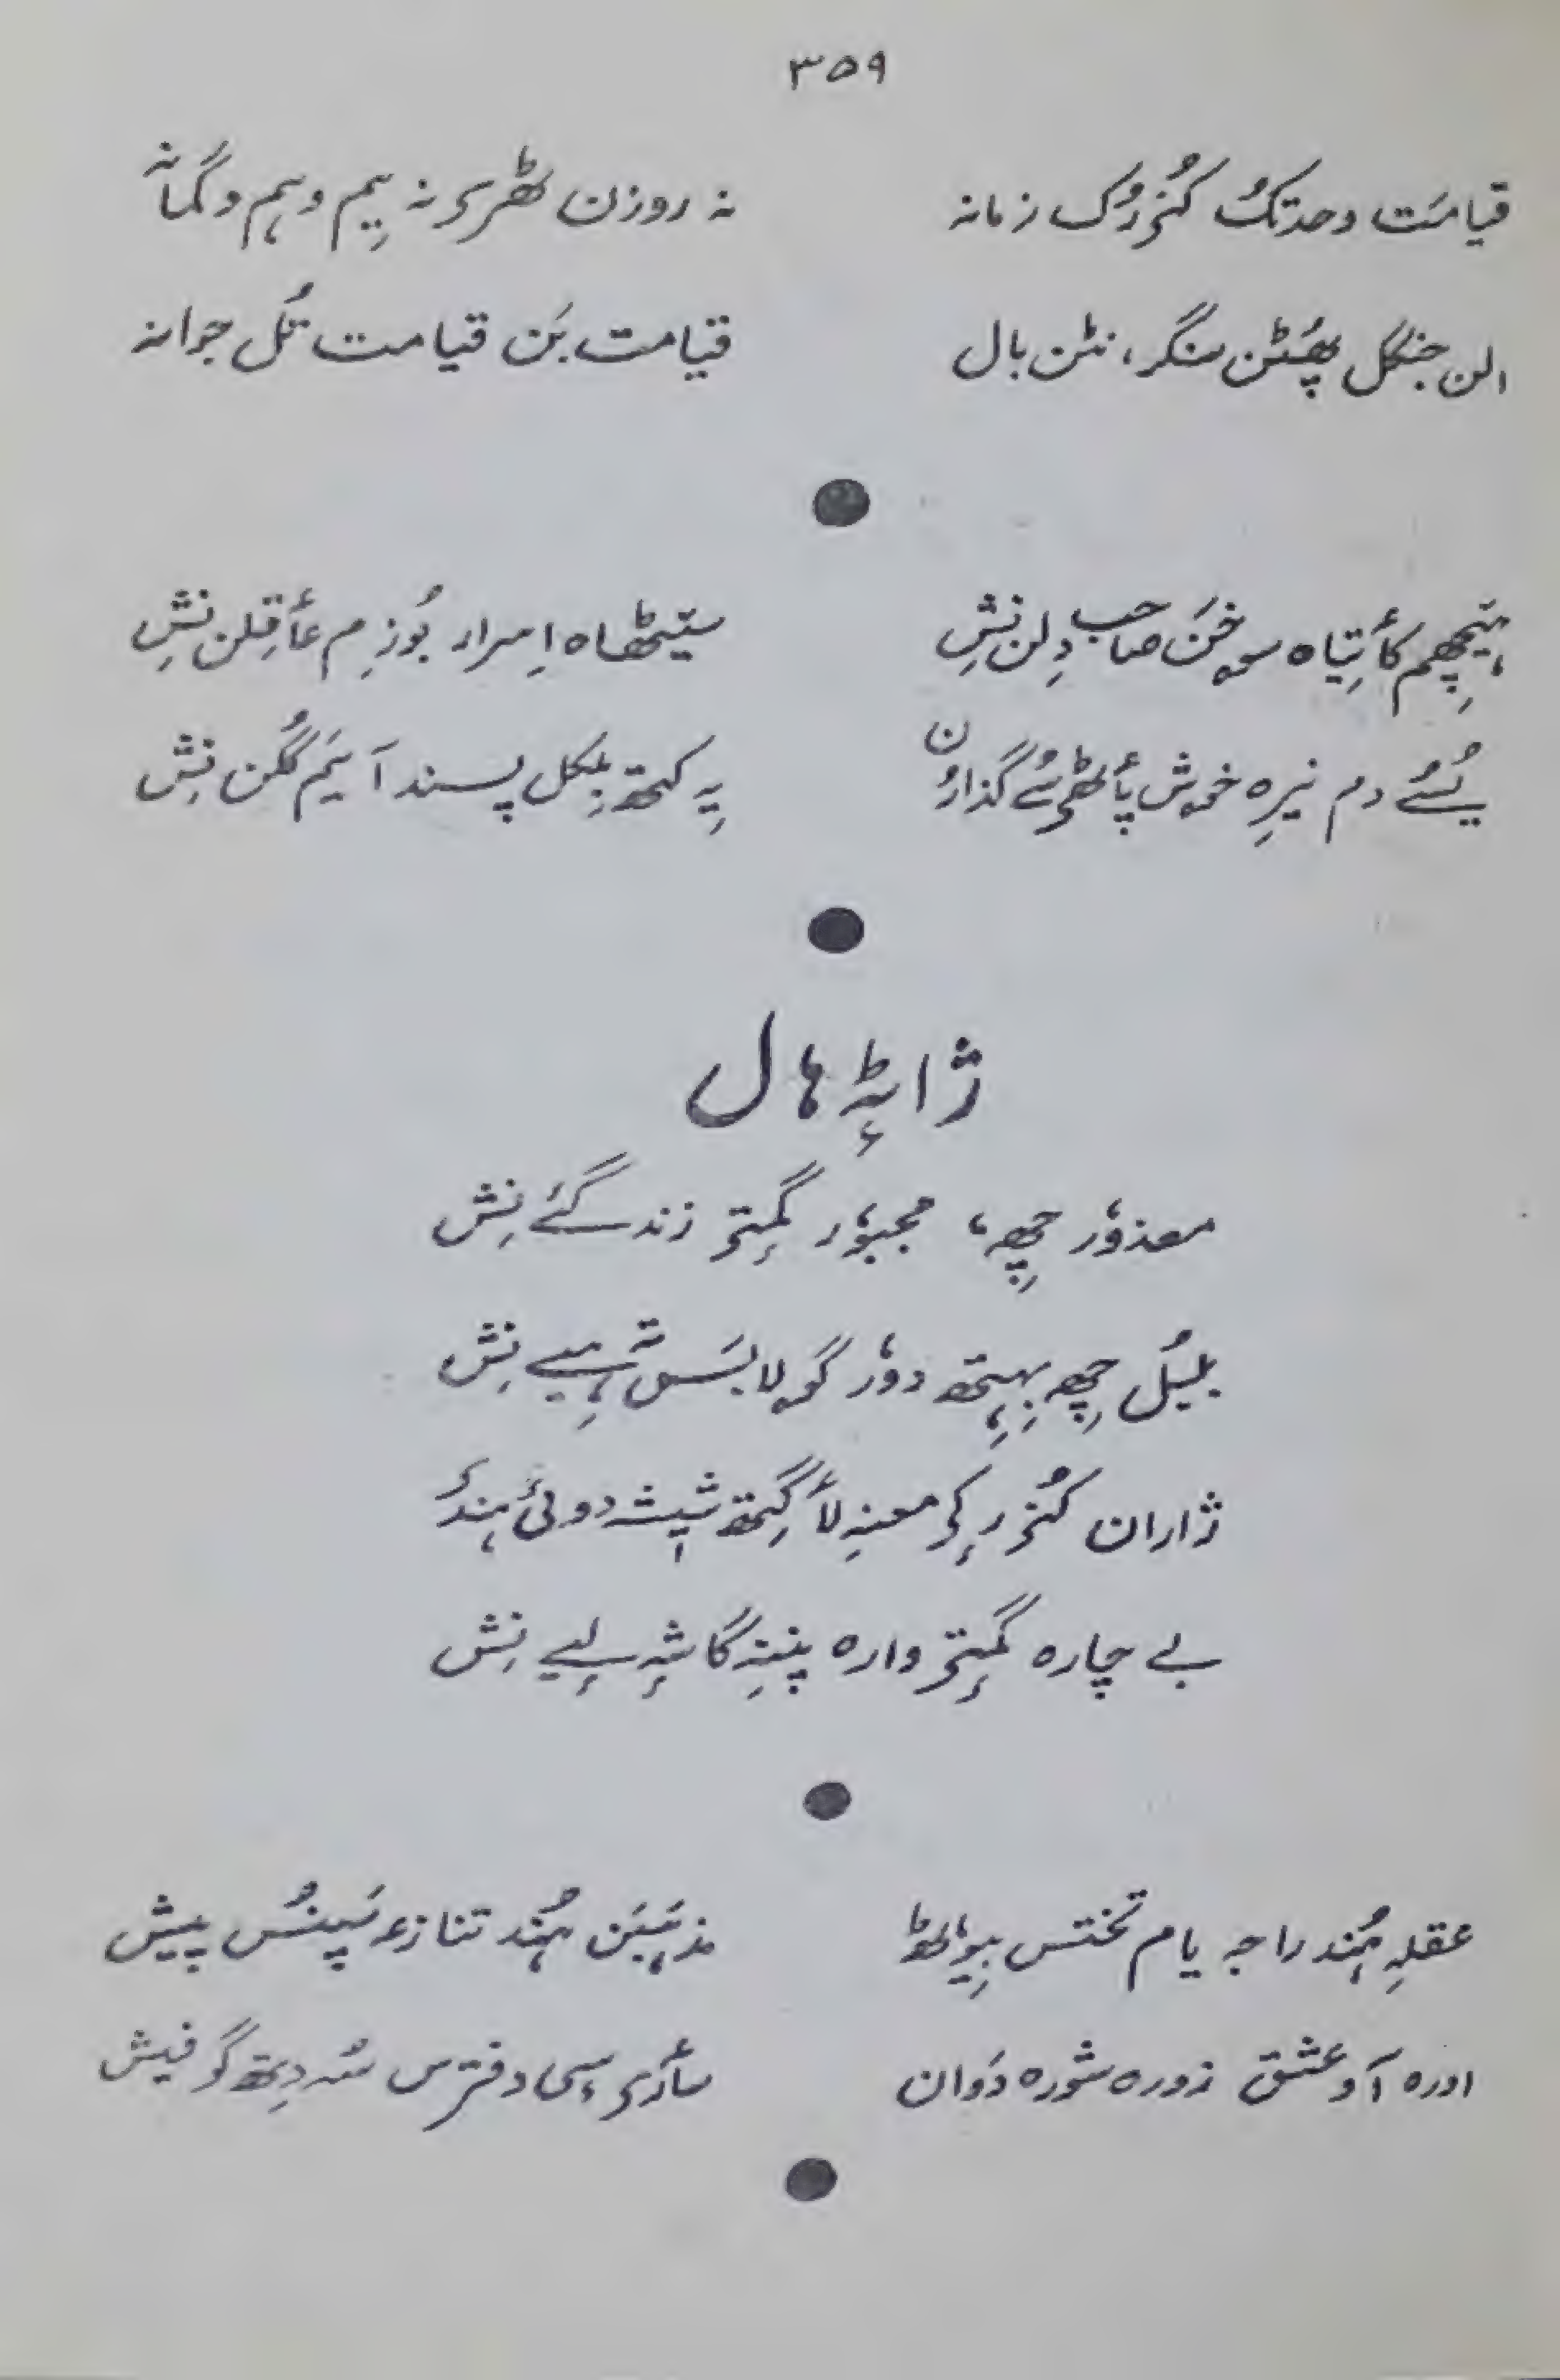 ۳۵۹
قیامَت وحدتکُ کُنۍ رُک زمانہ
نہ روزن ٹھرۍ نہ یِم وہم وگمانہ
الن جنگل پھُٹن سنگر، نٹن بال
قیامت بَن قیامت تُل جوانہ
ہیٚچھِم کأتِیاہ سۄخَن صاحب دِلن نِشِ
سیٚٹھاہ اِسرار بُوزِم عأقِلن نِشِ
یُسُے دم نیرِہ خۄش پأٹھۍ سُے گُذارُن
یِہ کتھ بِلکُل پسند آیَم گُلن نِشِ
ژاٹہٕ ہال
معذوٗر چھِ، مجبوٗر گمٕتۍ زندگیٔے نِش
بلبُل چھِ بِہِتھ دوٗر گۄلابس تہٕ ہیے نِش
ژاران کُنۍ رٕکۍ معنہِ لٲگِتھ شیٖشہ دویی ہندۍ
بے چارہ گمٕتۍ وارہ پننہِ گاشہٕ لیے نِش
عقلہِ ہُند راجہ یام تختس بیوٗٹھ
مذہَبَن ہُند تنازعہ سَپنُس پیش
اورہ آو عشق زورہ شورہ دَوان
سأرۍ سٕی دفترس سُہ دِتھ گو فیش